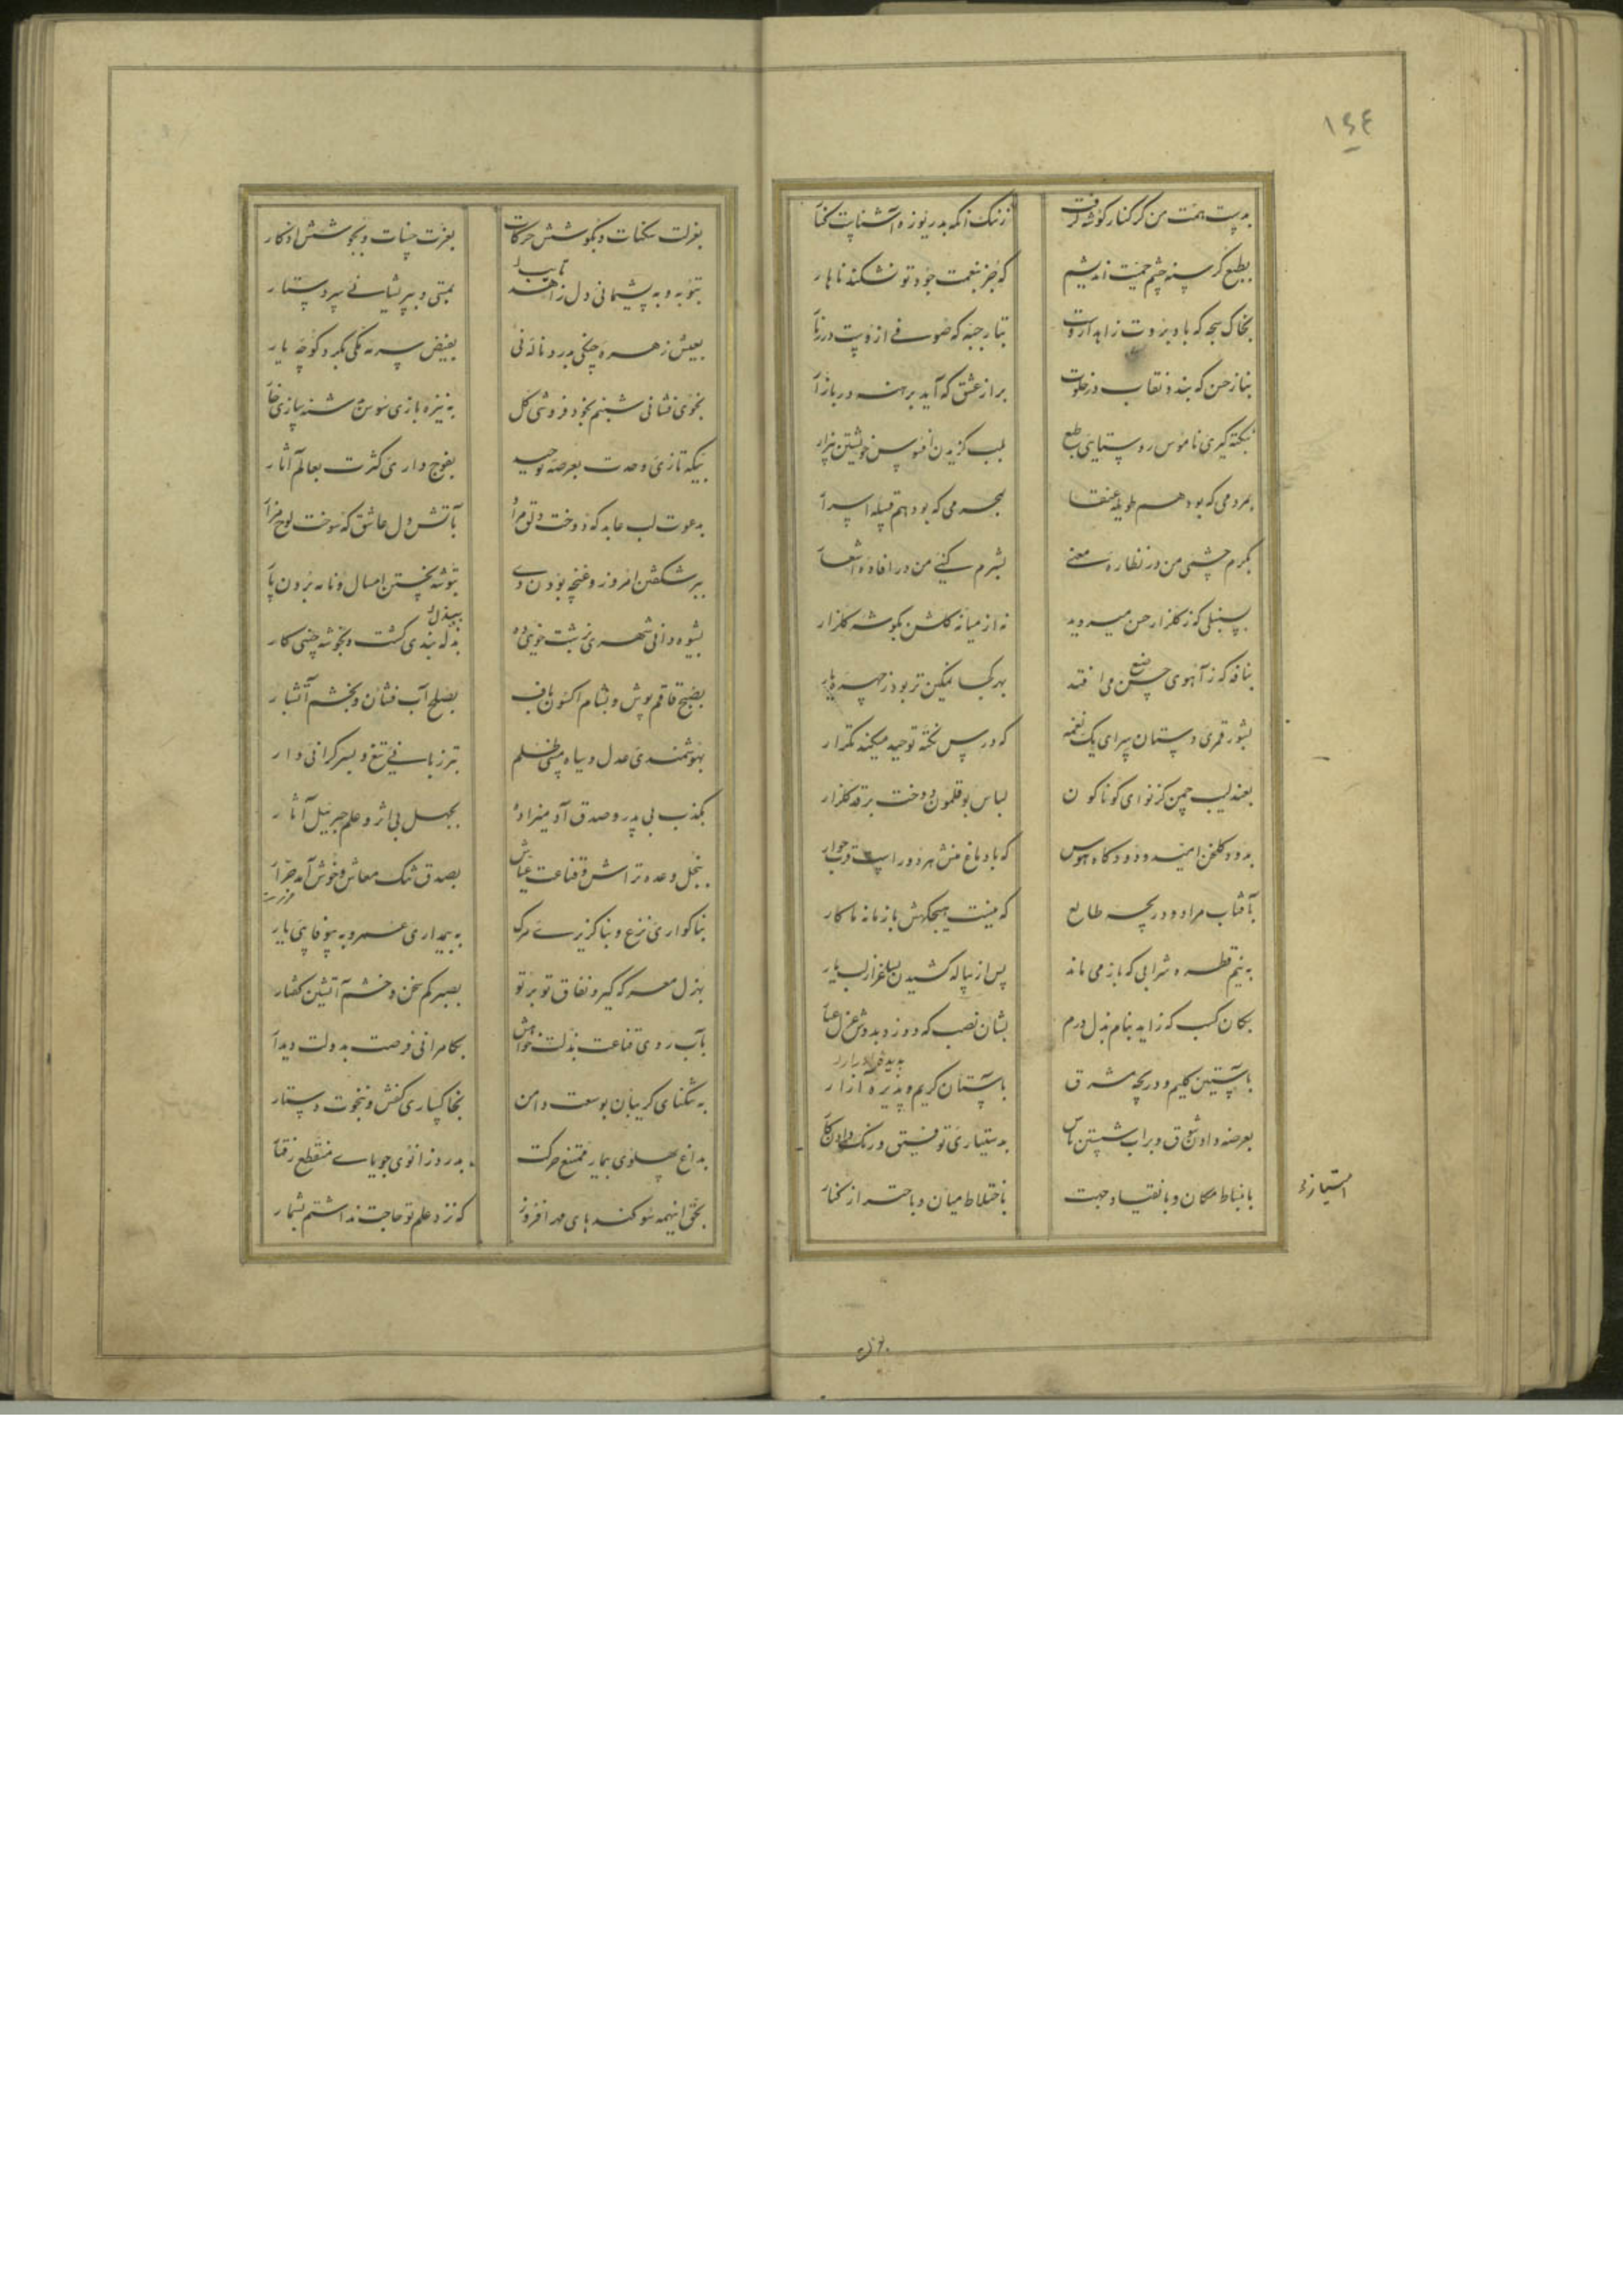 ۱۶۴
بدست همت من کز کنار گوشه گرفت
زننک آنکه بدریوزه آشناست کنار
بطبع کرسنه چشم حمیت اندیشم
که جز بنعمت جود تو نشکند ناهار
بخاک سجه که باد بروت زاهد ازوست
بتار جبه که صوفی ازوست در زنار
بناز حسن که بندد نقاب در خلوت
براز عشق که آید برهنه در بازار
بنکته گیری ناموس روستایی طبع
بلب گزیدن افسوس خویشتن بیزار
بمردمی که بود هم طویله عنقا
بمحرمی که بود هم قبیله اسرار
بگرم چشمی من در نظاره معنی
بشرم گنی من در افاده اشعار
بسنبلی که ز گلزار حسن میروید
نه از میانه گلشن بگوشه گلزار
بنافه که ز آهوی چین می افتد
بهر کجا نمکین تر بود ز چهره یار
بشور قمری دستان سرای یک نغمه
که درس نکته توحید میکند تکرار
بعندلیب چمن کز نوای گوناگون
لباس بوقلمون دوخت بر قد گلزار
بدود گلخن امید و دودگاه هوس
که با دماغ منش هر دو راست قرب جوار
بآفتاب مراد و دریچه طالع
که نیست هیچکهش با زمانه ما کار
به نیم قطره شرابی که باز می ماند
پس از پیاله کشیدن بساغر از لب یار
بکان کسب که زاید بنام بذل درم
بشان نصب که دوزد بدوش عزل عیار
بآستین کلیم و دریچه مشرق
بآستان کریم و پذیره آزار
بعرضه دادن شوق و براب شستن یاس
بدستیاری توفیق و رنک دادن کار
بانبساط مکان و بانقیاد جهت
باختلاط میان و باحتراز کنار
بعزلت سکنات و بکوشش حرکات
بعزت حسنات و بجوشش اذکار
بتوبه و به پشیمانی دل زاهد
بمستی و بپریشانی سر و دستار
بعیش زهره چنکی بدرد ناله نی
بفیض سرمه مکی بگرد کوچه یار
بخوی فشانی شبنم بخود فروشی گل
به نیزه بازی سوسن بدشنه بازی خار
بیکه تازی وحدت بعرصه توحید
بفوج داری کثرت بعالم آثار
بدعوت لب عابد که دوخت دلق مراد
بآتش دل عاشق که سوخت لوح مزار
بر شکفتن امروز و غنچه بودن دی
بتوشه بستن امسال و نامه بردن پار
بشیوه دانی شهری بزشت خویی ده
بذله بندی کشت و بخوشه چینی کار
بصبح قاقم پوش و بشام اکسون باف
بصلح آب فشان و بخشم آتشبار
بهوشمندی عدل و سیاه مستی ظلم
بترزبانی تیغ و بسرگرانی دار
بکذب بی پدر و صدق آدمیزاده
بجهل بی اثر و علم جبرئیل آثار
ببخل وعده تراش و قناعت عیاش
بصدق تنک معاش و خوش آمد جرار
بناگواری نزع و بناگزیری مرگ
به بیمداری عمر و به بیوفایی یار
بهزل معرکه گیر و نفاق تو بر تو
بصبر کم سخن و خشم آتشین گفتار
بآب روی قناعت بذلت خواهش
بکامرانی فرصت بدولت دیدار
به تنکنای گریبان بوسعت دامن
بخاکساری کفش و بنخوت دستار
بداغ پهلوی بیمار ممتنع حرکت
بدرد زانوی جویای منقطع رفتار
بحق اینهمه سوگندهای مهر افروز
که نزد علم تو حاجت نداشتم بشمار
بعزلت